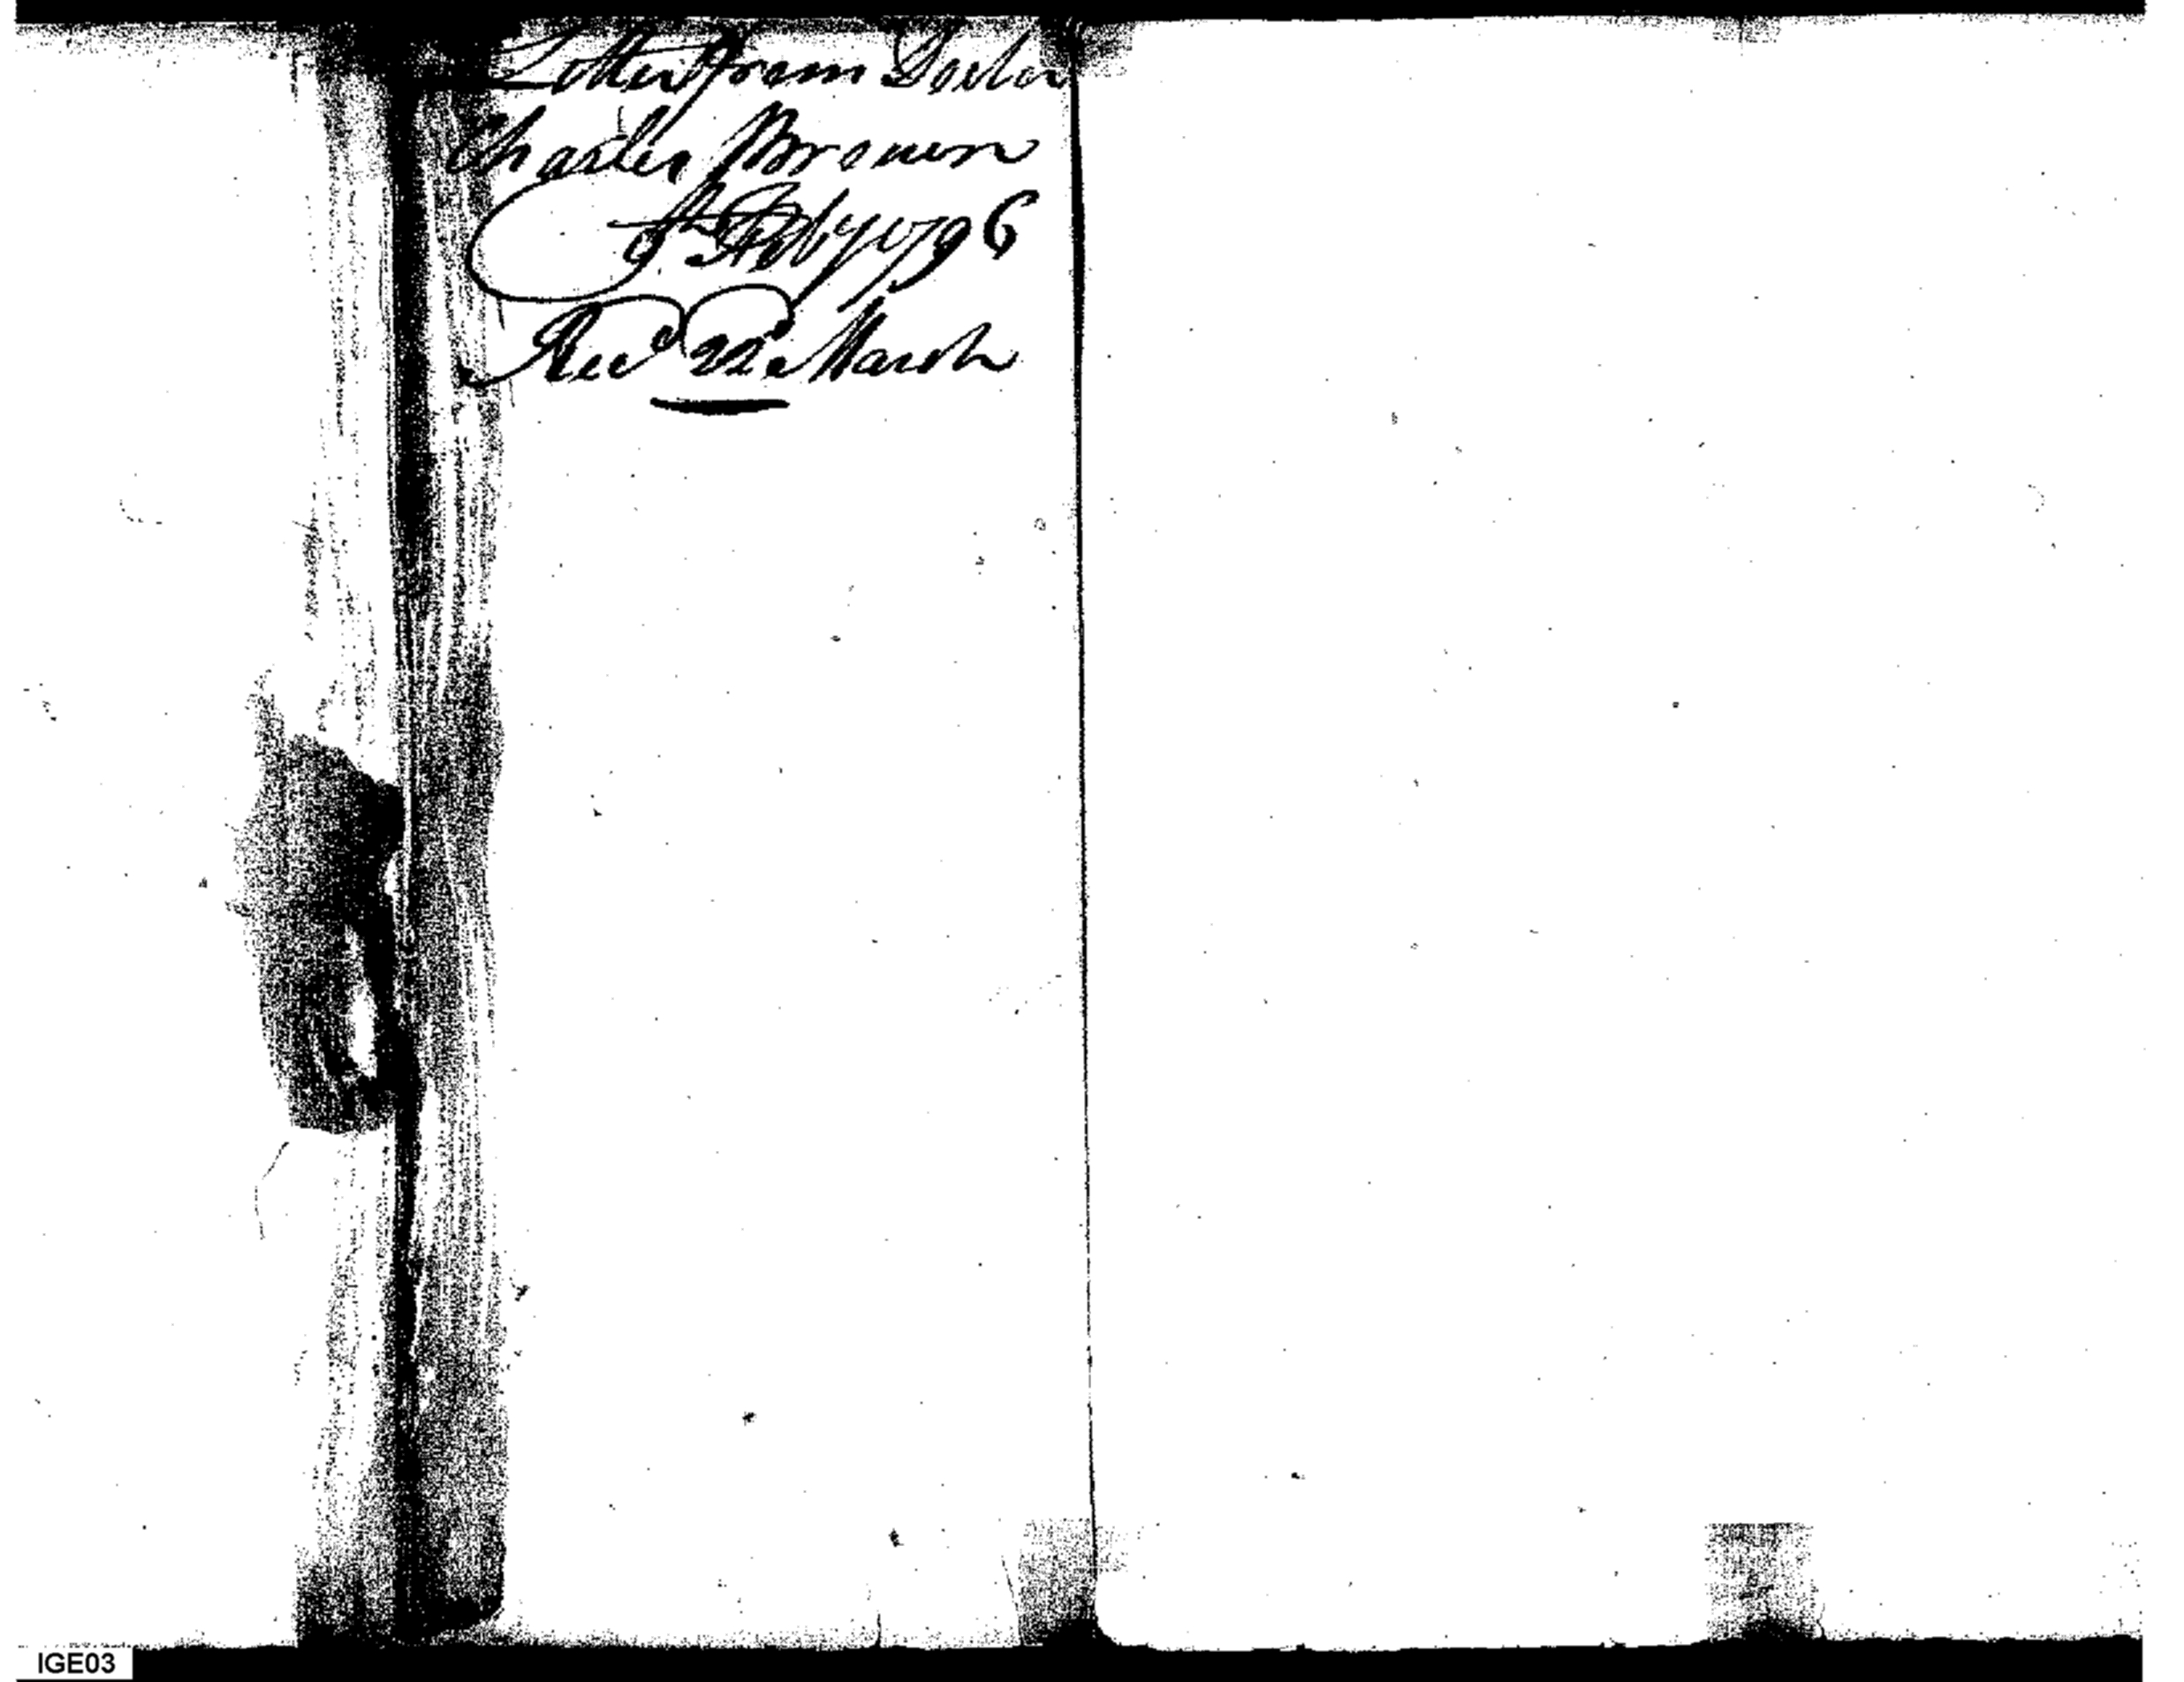 Letter from Doctor
Charles Brown
Feby 1796
Recd 22d March
IGE03